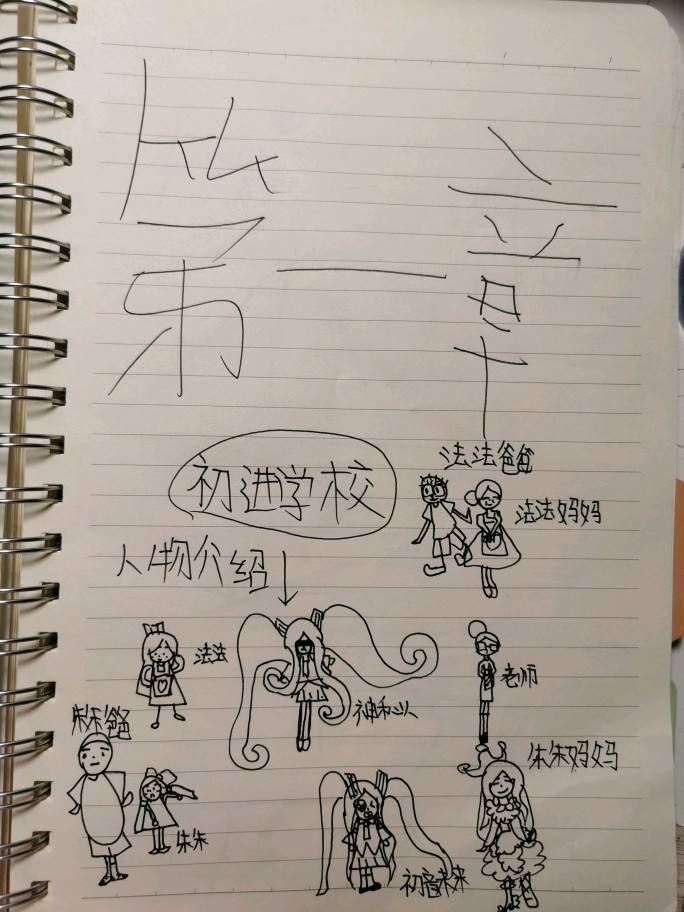 第一章
初进学校
法法爸爸
法法妈妈
人物介绍
法法
神秘人
老师
朱朱爸爸
朱朱妈妈
朱朱
初音未来